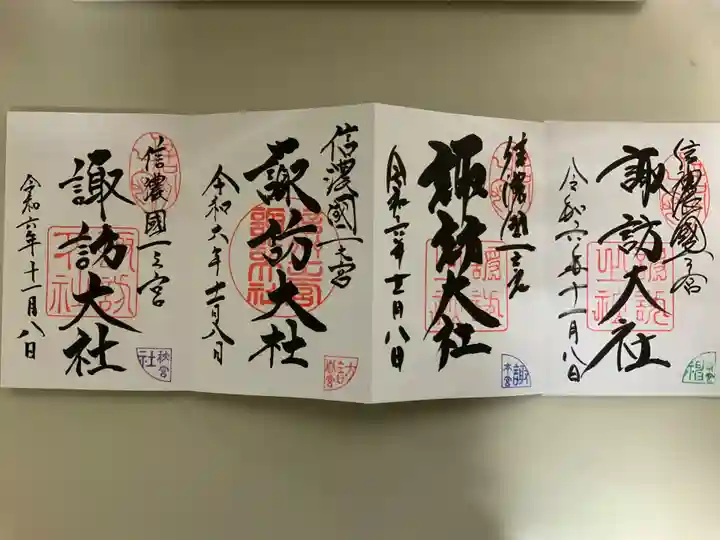 信濃國一之宮
諏訪大社
令和六年十一月八日
社
秋宮
信濃國一之宮
諏訪大社
令和六年十一月八日
信濃國一之宮
諏訪大社
令和六年十一月八日
諏
本宮
信濃國一之宮
諏訪大社
令和六年十一月八日